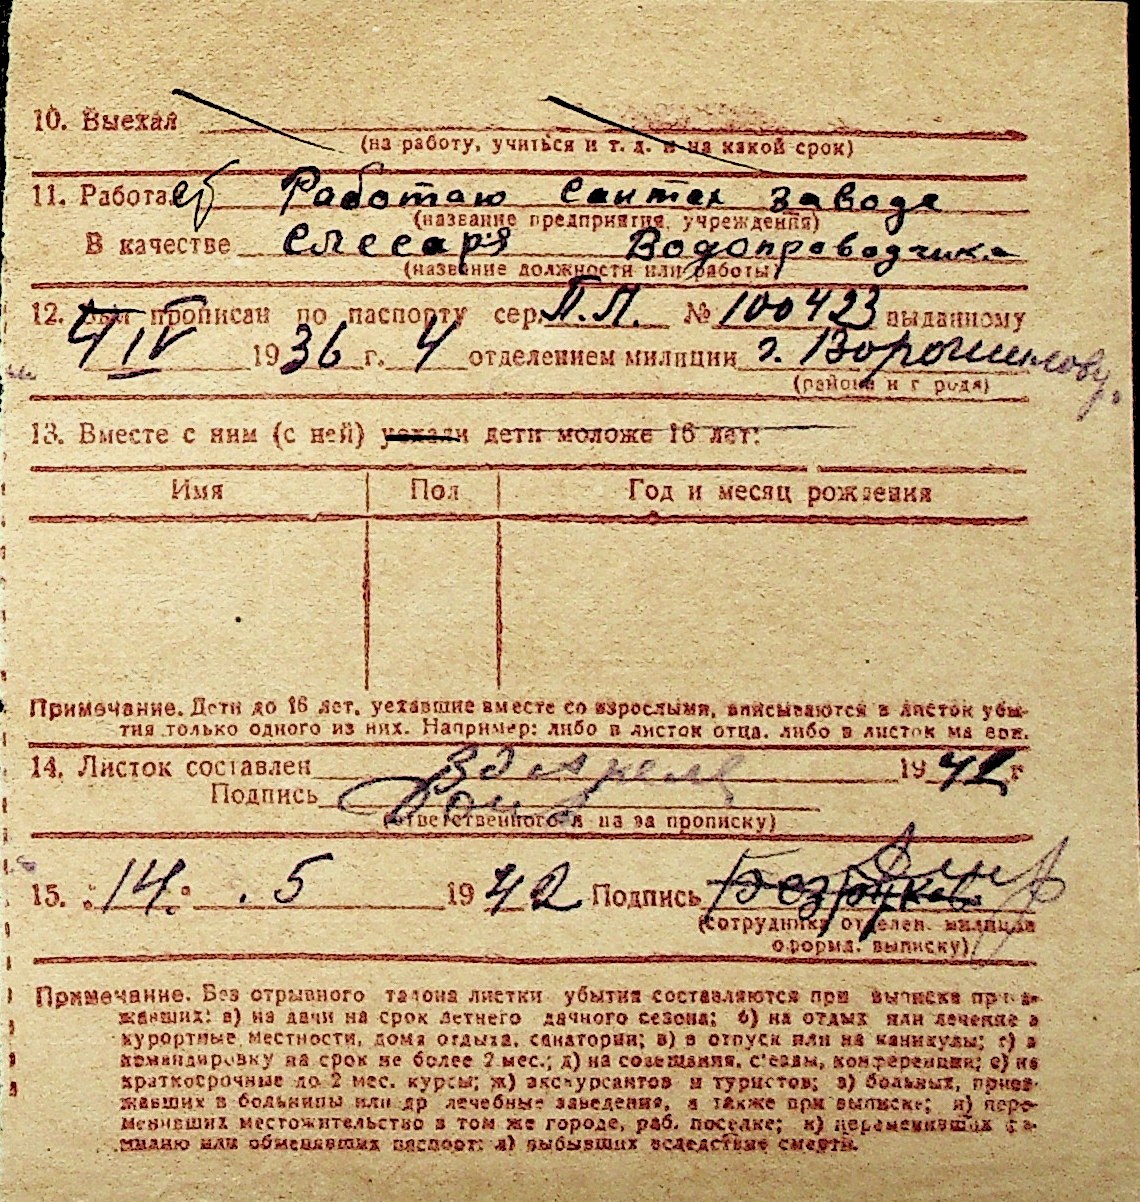 10. Выехал
(на работу, учиться и т. д. и на какой срок)
11. Работает Работаю Сантех завода
(название предприятия, учреждения)
В качестве слесаря Водопроводчика
(название должности или работы)
12. Был прописан по паспорту сер. П.М. № 100423 выданному
4 IV 1936 г. 4 отделением милиции г. Ворошилову.
(района и города)
13. Вместе с ним (с ней) уехали дети моложе 16 лет:
Имя Пол Год и месяц рождения
Примечание. Дети до 16 лет, уехавшие вместе со взрослыми, вписываются в листок убы-
тия только одного из них. Например: либо в листок отца, либо в листок матери.
14. Листок составлен 30 Апреля 1942 г
Подпись
(ответственного л на за прописку)
15. 14. 5 1942 Подпись Безруков
(сотрудника отделен. милиции
оформл. выписку)
Примечание. Без отрывного талона листки убытия составляются при выписке приез-
жавших: а) на дачи на срок летнего дачного сезона; б) на отдых или лечение в
курортные местности, дома отдыха, санатории; в) в отпуск или на каникулы; г) в
командировку на срок не более 2 мес.; д) на совещания, с'езды, конференции; е) на
краткосрочные до 2 мес. курсы; ж) экскурсантов и туристов; з) больных, приез-
жавших в больницы или др лечебные заведения, а также при выписке; и) пере-
менивших местожительство в том же городе, раб. поселке; к) переменивших фа-
милию или обменявших паспорт; л) выбывших вследствие смерти.